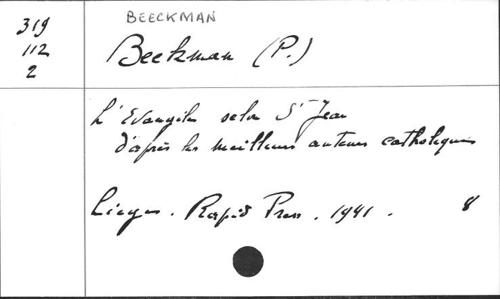 BEECKMAN
319
112
2
Beekman (P.)
L'Evangile selon St Jean
d'après les meilleurs auteurs catholiques
Liège. Rapid Press. 1941. 8